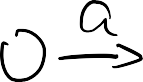 0 a→